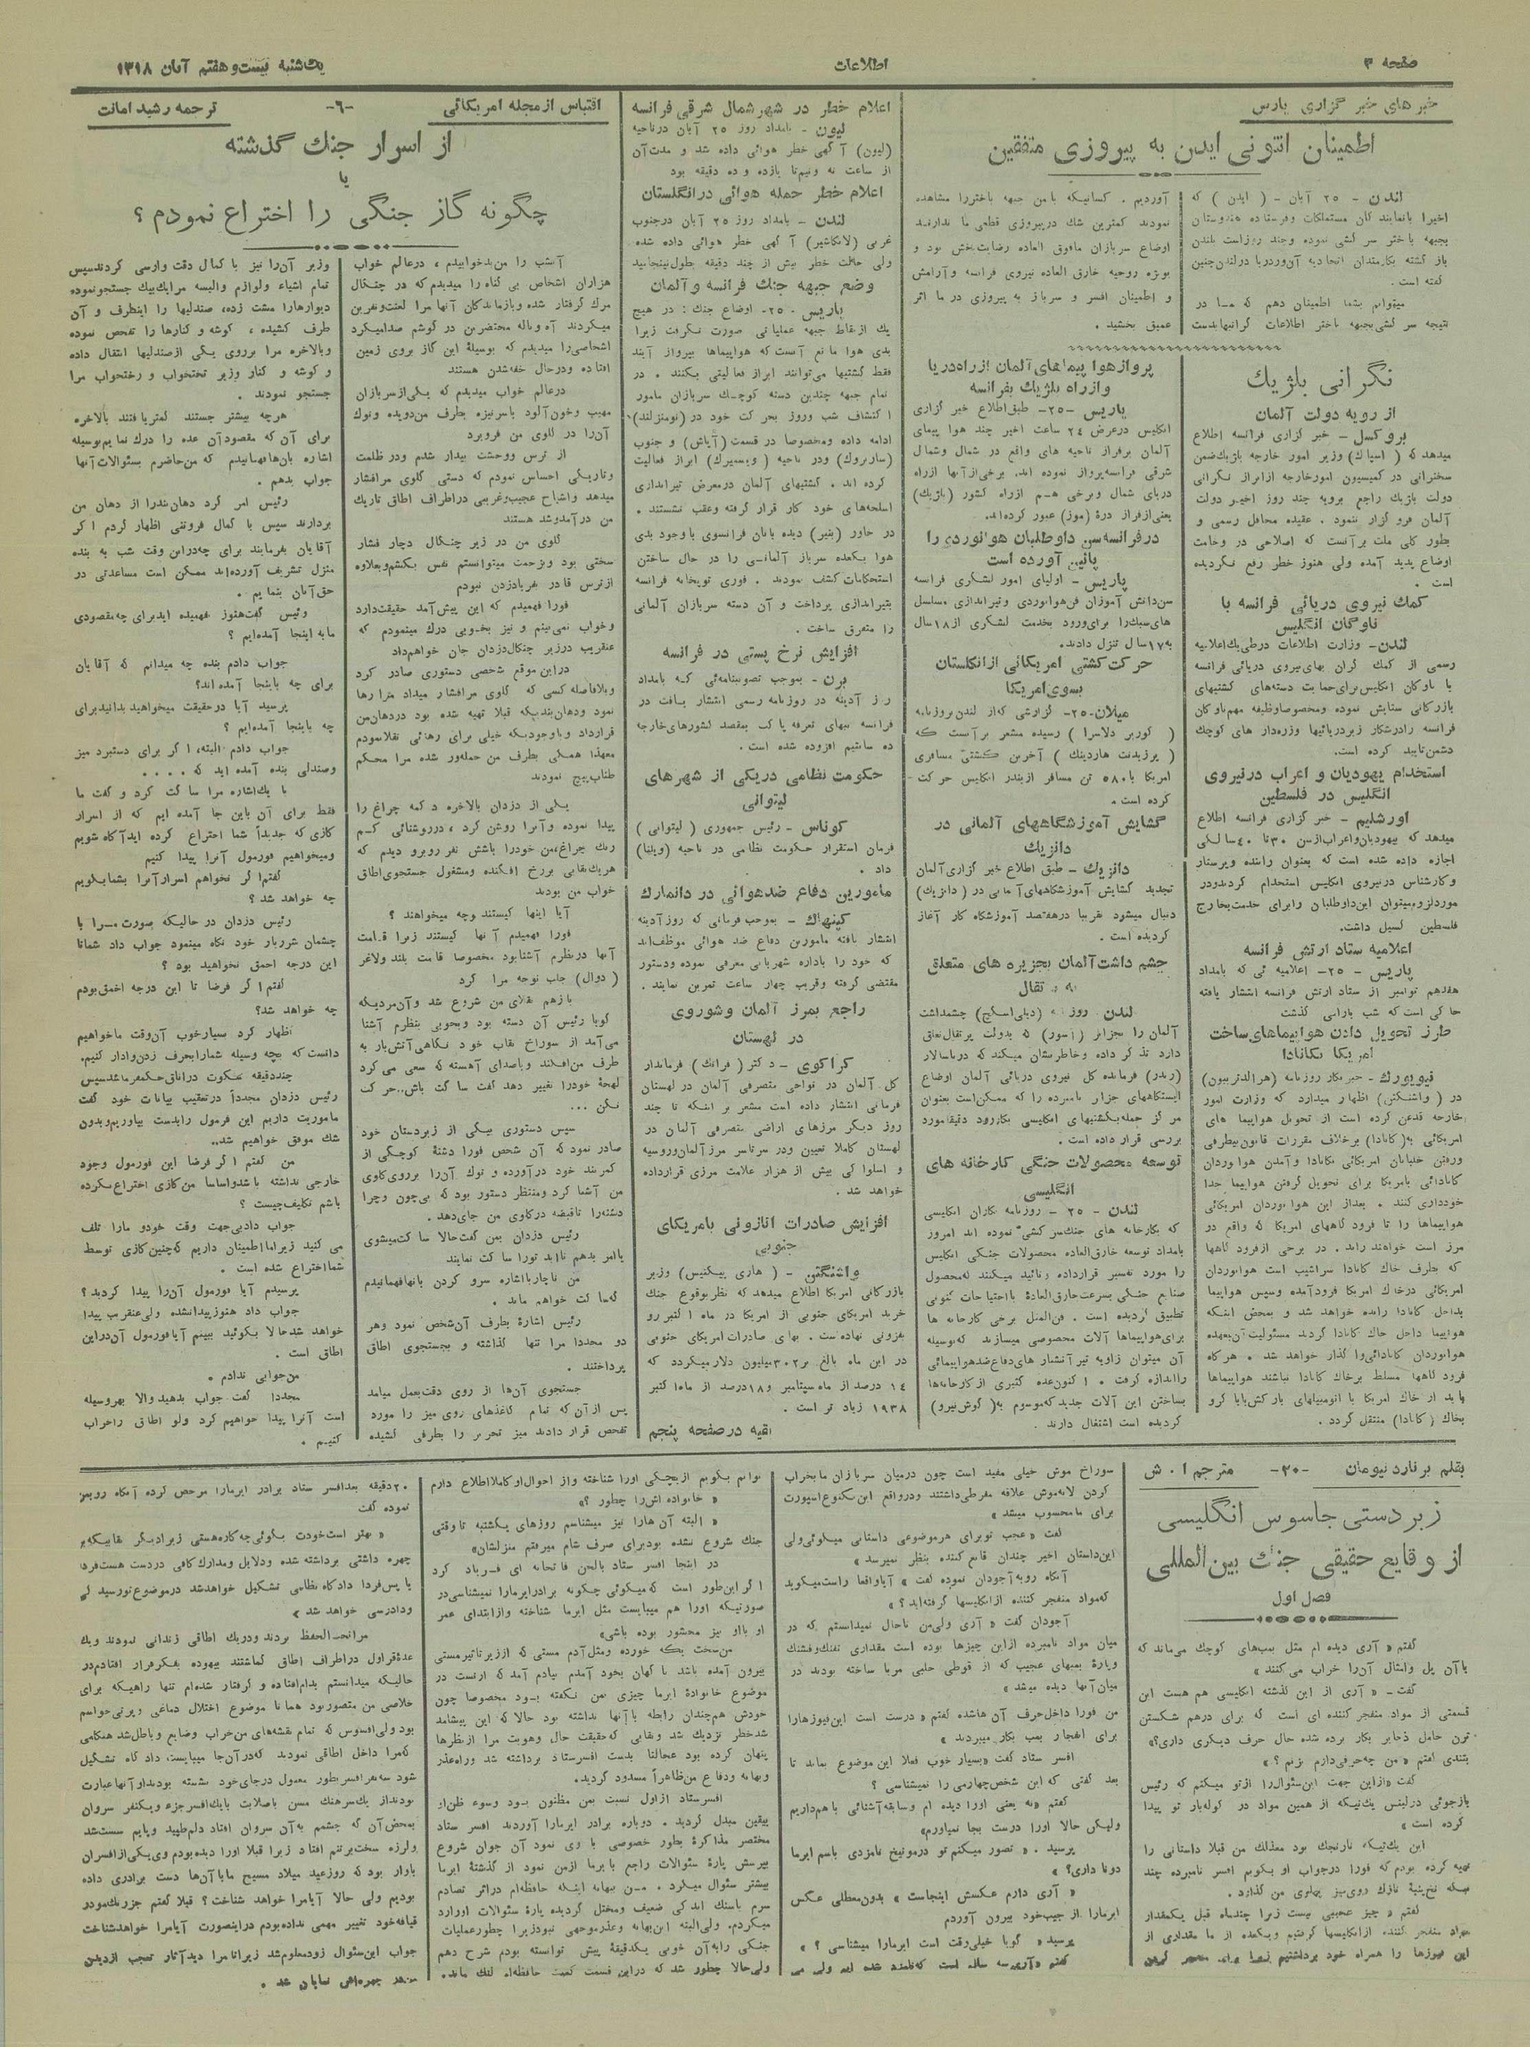 صفحه ۳
اطلاعات
یکشنبه بیست و هفتم آبان ۱۳۱۸
خبر های خبر گزاری پارس
اطمینان انتونی ایدن به پیروزی متفقین
لندن - ۲۵ آبان - ( ایدن ) که
اخیرا بانمایندگان مستملکات وفرستاده هندوستان
بجبهه باختر سر کشی نموده وچند روزاست بلندن
باز گشته بکارمندان اتحادیه آن‌وردریا درلندن‌چنین
گفته است .
میتوانم بشما اطمینان دهم که مــا در
نتیجه سر کشی بجبهه باختر اطلاعات گرانبهابدست
آوردیم . کسانیکه با من جبهه باختررا مشاهده
نمودند کمترین شك درپیروزی قطعی ما ندارند
اوضاع سربازان مافوق العاده رضایت‌بخش بود و
بویژه روحیه خارق العاده نیروی فرانسه وآرامش
و اطمینان افسر و سرباز به پیروزی در ما اثر
عمیق بخشید .
نگرانی بلژیك
از رویه دولت آلمان
بروکسل - خبر گزاری فرانسه اطلاع
میدهد که ( اسپاك ) وزیر امور خارجه بلژیك‌ضمن
سخنرانی در کمیسیون امورخارجه ازابراز نگرانی
دولت بلژیك راجع برویه چند روز اخیر دولت
آلمان فرو گزار ننمود . عقیده محافل رسمی و
بطور کلی ملت برآنست که اصلاحی در وخامت
اوضاع پدید آمده ولی هنوز خطر رفع نگردیده
است .
کمك نیروی دریائی فرانسه با
ناوگان انگلیس
لندن- وزارت اطلاعات درطی‌یك‌اعلامیه
رسمی از کمك گران بهای‌نیروی دریائی فرانسه
با ناوگان انگلیس‌برای‌حمایت دسته‌های کشتیهای
بازرگانی ستایش نموده ومخصوصاوظیفه مهم‌ناوگان
فرانسه رادرشکار زیردریائیها وزره‌دار های کوچك
دشمن‌تایید کرده است.
استخدام یهودیان و اعراب درنیروی
انگلیس در فلسطین
اورشلیم - خبر گزاری فرانسه اطلاع
میدهد که یهودیان‌واعراب‌ازسن ۳۰تا ۴۰سالگی
اجازه داده شده است که بعنوان راننده وپرستار
وکارشناس درنیروی انگلیس استخدام گردندودر
موردلزوم‌میتوان این‌داوطلبان رابرای خدمت‌بخارج
فلسطین گسیل داشت.
اعلامیه ستاد ارتش فرانسه
پاریس - ۲۵- اعلامیه ئی که بامداد
هفدهم نوامبر از ستاد ارتش فرانسه انتشار یافته
حاکی است که شب بارامی گذشت
طرز تحویل دادن هواپیماهای‌ساخت
امریکا بکانادا
نیویورك - خبر نگار روزنامه (هرالدتریبون)
در ( واشنگتن ) اظهار میدارد که وزارت امور
خارجه قدغن کرده است از تحویل هواپیما های
امریکائی به(کانادا) برخلاف مقررات قانون‌بیطرفی
ورفتن خلبانان امریکائی بکانادا وآمدن هوانوردان
کانادائی بامریکا برای تحویل گرفتن هواپیما جدا
خودداری کنند . بعداز این هوانوردان امریکائی
هواپیماها را تا فرود گاههای امریکا که واقع در
مرز است خواهندراند . در برخی ازفرود گاهها
که بطرف خاك کانادا سراشیب است هوانوردان
امریکائی درخاك امریکا فرودآمده وسپس هواپیما
بداخل کانادا رانده خواهد شد و بمحض اینکه
هواپیما داخل خاك کانادا گردید مسئولیت آن‌بعهده
هوانوردان کانادائی‌وا گذار خواهد شد . هرگاه
فرود گاهها مسلط برخاك کانادا نباشند هواپیماها
باید از خاك امریکا با اتومبیلهای بارکش‌بایا گرو
بخاك (کانادا) منتقل گردد .
پروازهوا پیماهای آلمان ازراه‌دریا
وازراه بلژیك بفرانسه
پاریس -۲۵- طبق‌اطلاع خبر گزاری
انگلیس درعرض ۲۴ ساعت اخیر چند هوا پیمای
آلمان برفراز ناحیه های واقع در شمال وشمال
شرقی فرانسه‌پرواز نموده اند. برخی‌ازآنها ازراه
دریای شمال وبرخی هــم ازراه کشور (بلژیك)
یعنی‌ازفراز درهٔ (موز) عبور کرده‌اند.
درفرانسه‌سن داوطلبان هوانوردی را
پائین آورده است
پاریس - اولیای امور لشکری فرانسه
سن‌دانش آموزان فن‌هوانوردی وتیراندازی مسلسل
های‌سبك‌را برای‌ورود بخدمت لشکری از۱۸سال
به۱۷سال تنزل دادند.
حرکت‌کشتی امریکائی ازانگلستان
بسوی‌امریکا
میلان-۲۵- گزارشی که‌از لندن بروزنامه
( کوریر دلاسرا ) رسیده مشعر برآنست که
( پرزیدنت هاردینك ) آخرین کشتی مسافری
امریکا با۵۸۰ تن مسافر ازبندر انگلیس حرکت
کرده است .
گشایش آموزشگاههای آلمانی در
دانزیك
دانزیك - طبق اطلاع خبر گزاری‌آلمان
تجدید گشایش آموزشگاههای‌آلمانی در ( دانزیك )
دنبال میشود تقریبا درهفتصد آموزشگاه کار آغاز
گردیده است .
چشم داشت‌آلمان بجزیره های متعلق
به پرتقال
لندن روزنامه (دیلی‌اسکچ) چشمداشت
آلمان را بجزائر (آسور) که بدولت پرتقال‌تعلق
دارد تذکر داده وخاطرنشان میکند که دریاسالار
(ریدر) فرمانده کل نیروی دریائی آلمان اوضاع
ایستگاههای جزائر نامبرده را که ممکن‌است بعنوان
مرکز حمله‌بکشتیهای انگلیسی بکاررود دقیقامورد
بررسی قرار داده است .
توسعه محصولات جنگی کارخانه های
انگلیسی
لندن - ۲۵ - روزنامه نگاران انگلیسی
که بکارخانه های جنك‌سرکشی نموده اند امروز
بامداد توسعه خارق‌العاده محصولات جنگی انگلیس
را مورد تفسیر قرارداده وتائید میکنند که‌محصول
صنایع جنگی بسرعت‌خارق‌العادهٔ بااحتیاجات کنونی
تطبیق گردیده است . فی‌المثل برخی کارخانه ها
برای‌هواپیماها آلات مخصوصی میسازند که‌بوسیله
آن میتوان زاویه تیر آتشبار های‌دفاع‌ضدهواپیمائی
رااندازه گرفت . ا کنون‌عده کثیری ازکارخانه‌ها
بساختن این آلات جدیدکه‌موسوم به( گوش‌نیرو)
گردیده است اشتغال دارند .
اعلام خطر در شهر شمال شرقی فرانسه
لیون - بامداد روز ۲۵ آبان درناحیه
(لیون) آگهی خطر هوائی داده شد و مدت‌آن
از ساعت نه ونیم‌تا یازده و ده دقیقه بود
اعلام خطر حمله هوائی درانگلستان
لندن - بامداد روز ۲۵ آبان درجنوب
غربی (لانکاشیر) آ گهی خطر هوائی داده شده
ولی حالت خطر بیش از چند دقیقه بطول‌نینجامید
وضع جبهه جنك فرانسه وآلمان
پاریس -۲۵- اوضاع جنك : در هیچ
یك ازنقاط جبهه عملیاتی صورت نگرفت زیرا
بدی هوا مانع آنست که هواپیماها بپرواز آیند
فقط گشتیها می‌توانند ابراز فعالیتی بکنند . در
تمام جبهه چندین دسته کوچك سربازان مامور
ا کتشاف شب وروز بحرکت خود در (نومنزلند)
ادامه داده ومخصوصا در قسمت (آپاش) و جنوب
(ساربروك) ودر ناحیه ( ویسمبرك ) ابراز فعالیت
کرده اند . گشتیهای آلمان درمعرض تیراندازی
اسلحه‌های خود کار قرار گرفته وعقب نشستند .
در خاور (بنیر) دیده بانان فرانسوی باوجود بدی
هوا یکعده سرباز آلمانــی را در حال ساختن
استحکامات کشف نمودند . فوری توپخانه فرانسه
بتیراندازی پرداخت و آن دسته سربازان آلمانی
را متفرق ساخت .
افزایش نرخ پستی در فرانسه
برن - بموجب تصویبنامه‌ئی که بامداد
روز آدینه در روزنامه رسمی انتشار یافت در
فرانسه بهای تعرفه پاکت بمقصد کشورهای‌خارجه
ده سانتیم افزوده شده است .
حکومت نظامی دریکی از شهرهای
لیتوانی
کوناس - رئیس جمهوری ( لیتوانی )
فرمان استقرار حکومت نظامی در ناحیه (ویلنا)
داد .
مامورین دفاع ضدهوائی در دانمارك
کپنهاك - بموجب فرمانی که روز آدینه
انتشار یافته مامورین دفاع ضد هوائی موظف‌اند
که خود را باداره شهربانی معرفی نموده ودستور
مقتضی گرفته وقریب چهار ساعت تمرین نمایند .
راجع بمرز آلمان وشوروی
در لهستان
کراکوی - دکتر ( فرانك ) فرماندار
کل آلمان در نواحی متصرفی آلمان در لهستان
فرمانی انتشار داده است مشعر بر اینکه تا چند
روز دیگر مرزهای اراضی متصرفی آلمان در
لهستان کاملا تعیین ودر سرتاسر مرز آلمان‌وروسیه
و اسلوا کی بیش از هزار علامت مرزی قرارداده
خواهد شد .
افزایش صادرات اتازونی بامریکای
جنوبی
واشنگتن - ( هاری پیکنیس) وزیر
بازرگانی امریکا اطلاع میدهد که نظربوقوع جنك
خرید امریکای جنوبی از امریکا در ماه ا کتبر رو
بفزونی نهاده‌است . بهای صادرات امریکای جنوبی
در این ماه بالغ بر ۳۰۲میلیون دلار میگردد که
۱۴ درصد از ماه سپتامبر و۱۸درصد از ماه‌ا کتبر
۱۹۳۸ زیاد تر است .
بقیه در صفحه پنجم
اقتباس از مجله امریکائی
-۶-
ترجمه رشید امانت
از اسرار جنك گذشته
یا
چگونه گاز جنگی را اختراع نمودم ؟
آنشب را من‌بدخوابیدم ، درعالم خواب
هزاران اشخاص بی گناه را میدیدم که در چنگال
مرك گرفتار شده وبازماندگان آنها مرا لعنت‌ونفرین
میکردند آه وناله محتضرین در گوشم صدامیکرد
اشخاصی‌را میدیدم که بوسیلهٔ این گاز بروی زمین
افتاده ودرحال خفه‌شدن هستند
درعالم خواب میدیدم که یکی‌ازسربازان
مهیب وخون‌آلود باسرنیزه بطرف من‌دویده ونوك
آن‌را در گلوی من فروبرد
از ترس ووحشت بیدار شدم ودر ظلمت
وتاریکی احساس نمودم که دستی گلوی مرافشار
میدهد واشباح عجیب‌وغریبی دراطراف اطاق تاریك
من درآمدوشد هستند
گلوی من در زیر چنگال دچار فشار
سختی بود وبزحمت میتوانستم نفس بکشم‌وبعلاوه
ازترس قادر بفریادزدن نبودم
فورا فهمیدم که این پیش‌آمد حقیقت‌دارد
وخواب نمی‌بینم و نیز بخــوبی درك مینمودم که
عنقریب درزیر چنگال‌دزدان جان خواهم‌داد
دراین‌موقع شخصی دستوری صادر کرد
وبلافاصله کسی که گلوی مرافشار میداد مرا رها
نمود ودهان‌بندیکه قبلا تهیه شده بود دردهان‌من
قرارداد وباوجودیکه خیلی برای رهائی تقلانمودم
معهذا همگی بطرف من حمله‌ور شده مرا محکم
طناب‌پیچ نمودند
یکی از دزدان بالاخره دکمه چراغ را
پیدا نموده وآنرا روشن کرد ، درروشنائی کــم
رنك چراغ،من خودرا باشش نفر روبرو دیدم که
هریك‌نقابی برخ افکنده ومشغول جستجوی‌اطاق
خواب من بودند
آیا اینها کیستند وچه میخواهند ؟
فورا فهمیدم آنها کیستند زیرا قــامت
آنها درنظرم آشنابود مخصوصا قامت بلند ولاغر
( دوال ) جلب توجه مرا کرد
بازهم تقلای من شروع شد وآن‌مردیکه
گویا رئیس آن دسته بود وبخوبی بنظرم آشنا
می‌آمد از سوراخ نقاب خود نگاهی آتش‌بار به
طرف من‌افکند وباصدای آهسته که سعی می‌کرد
لهجهٔ خودرا تغییر دهد گفت سا کت باش..حرکت
نکن ...
سپس دستوری بیکی از زیردستان خود
صادر نمود که آن شخص فورا دشنهٔ کوچکی از
کمربند خود درآورده و نوك آن‌را برروی‌گلوی
من آشنا کرد ومنتظر دستور بود که بی‌چون وچرا
دشنه‌را تاقبضه درگلوی من جای‌دهد.
رئیس دزدان بمن گفت‌حالا ساکت‌میشوی
یاامر بدهم تاابد تورا ساکت نمایند
من ناچاربااشاره سرو گردن بآنهافهمانیدم
که‌ساکت خواهم ماند .
رئیس اشارهٔ بطرف آن‌شخص نمود وهر
دو مجددا مرا تنها گذاشته و بجستجوی اطاق
پرداختند .
جستجوی آن‌ها از روی دقت‌بعمل میامد
پس ازآن که تمام کاغذهای روی میز را مورد
تفحص قرار دادند میز تحریر را بطرفی کشیده
وزیر آن‌را نیز با کمال دقت وارسی کردندسپس
تمام اشیاء ولوازم والبسه مرایك‌بیك جستجونموده
دیوارهارا مشت زده، صندلیها را اینطرف و آن
طرف کشیده ، گوشه و کنارها را تفحص نموده
وبالاخره مرا برروی یکی ازصندلیها انتقال داده
و گوشه و کنار وزیر تختخواب و رختخواب مرا
جستجو نمودند .
هرچه بیشتر جستند کمتریافتند بالاخره
برای آن که مقصودآن عده را درك نمایم‌بوسیله
اشاره بآن‌هافهمانیدم که من‌حاضرم بسئوالات‌آنها
جواب بدهم .
رئیس امر کرد دهان‌بندرا از دهان من
بردارند سپس با کمال فروتنی اظهار کردم ا گر
آقایان بفرمایند برای چه‌دراین وقت شب به بنده
منزل تشریف آورده‌اند ممکن است مساعدتی در
حق‌آنان بنمایم .
رئیس گفت‌هنوز نفهمیده ایدبرای چه‌مقصودی
مابه اینجا آمده‌ایم ؟
جواب دادم بنده چه میدانم که آقایان
برای چه باینجا آمده‌اند؟
پرسید آیا درحقیقت میخواهید بدانیدبرای
چه باینجا آمده‌ایم ؟
جواب دادم البته، ا گر برای دستبرد میز
وصندلی بنده آمده اید که ....
با یك‌اشاره مرا سا کت کرد و گفت ما
فقط برای آن باین جا آمده ایم که از اسرار
گازی که جدیداً شما اختراع کرده ایدآگاه شویم
ومیخواهیم فورمول آنرا پیدا کنیم
گفتم‌ا گر نخواهم اسرارآنرا بشمابگویم
چه خواهد شد ؟
رئیس دزدان در حالیکه بصورت مــرا با
چشمان شرربار خود نگاه مینمود جواب داد شماتا
این درجه احمق نخواهید بود ؟
گفتم‌ا گر فرضا تا این درجه احمق‌بودم
چه خواهد شد؟
اظهار کرد بسیارخوب آن‌وقت ماخواهیم
دانست‌که بچه وسیله شمارابحرف زدن‌وادار کنیم.
چنددقیقه سکوت دراتاق حکمفرماشدسپس
رئیس دزدان مجدداً درتعقیب بیانات خود گفت
ماموریت داریم این فرمول رابدست بیاوریم‌وبدون
شك موفق خواهیم شد..
من گفتم ا گر فرضا این فورمول وجود
خارجی نداشته باشدواساسا من‌گازی اختراع‌نکرده
باشم تکلیف‌چیست ؟
جواب دادبی‌جهت وقت خودو مارا تلف
می کنید زیراما‌اطمینان داریم که‌چنین‌گازی توسط
شمااختراع شده است .
پرسیدم آیا فورمول آن‌را پیدا کردید؟
جواب داد هنوزپیدانشده ولی‌عنقریب پیدا
خواهد شدحالا بگوئید ببینم آیافورمول آن‌دراین
اطاق است .
من‌جوابی ندادم .
مجددا گفت جواب بدهید والا بهروسیله
است آنرا پیدا خواهیم کرد ولو اطاق راخراب
کنیم .
بقلم برنارد نیومان
-۲۰-
مترجم ا . ش
زبردستی جاسوس انگلیسی
از وقایع حقیقی جنك بین‌المللی
فصل اول
گفتم « آری دیده ام مثل بمب‌های کوچك می‌ماند که
باآن پل وامثال آن‌را خراب می‌کنند »
گفت- « آری از این گذشته انگلیسی هم هست این
قسمتی از مواد منفجر کننده ای است که برای درهم شکستن
ترن حامل ذخایر بکار برده شده حال حرف دیگری داری؟»
بتندی گفتم «من چه‌حرفی‌دارم بزنم ؟ »
گفت «ازاین جهت این‌سئوال‌را ازتو میکنم که رئیس
بازجوئی درلینس یك‌تیکه از همین مواد در کوله‌بار تو پیدا
کرده است »
این یك‌تیکه نارنجك بود معذلك من قبلا داستانی را
تهیه کرده بودم که فورا درجواب او بگویم افسر نامبرده چند
تیکه نخ‌پنبهٔ نازك روی‌میز پهلوی من گذارد .
گفتم « چیز عجیبی نیست زیرا چندماه قبل یکمقدار
مواد منفجر کننده ازانگلیسها گرفتیم ویکعده از ما مقداری از
این فیوزها را همراه خود برداشتیم زیرا برای منفجر کردن
سوراخ موش خیلی مفید است چون درمیان سربازان مابخراب
کردن لانه‌موش علاقه مفرطی‌داشتند ودرواقع این‌یکنوع‌اسپورت
برای ما محسوب میشد »
گفت «عجب توبرای هرموضوعی داستانی میگوئی‌ولی
این‌داستان اخیر چندان قانع کننده بنظر نمیرسد »
آنگاه روبه‌آجودان نموده گفت « آیاواقعا راست‌میگوید
که‌مواد منفجر کننده ازانگلیسها گرفته‌اید؟ »
آجودان گفت « آری ولی‌من تاحال نمیدانستم که در
میان مواد نامبرده ازاین چیزها بوده است مقداری تفنك‌وفشنك
وپارهٔ بمبهای عجیب که از قوطی حلبی مربا ساخته بودند در
میان‌آنها دیده میشد »
من فورا داخل‌حرف آن هاشده گفتم « درست است این‌فیوزهارا
برای انفجار بمب بکار میبردند »
افسر ستاد گفت «بسیار خوب فعلا این موضوع بماند تا
بعد گفتی که این شخص‌چهارمی را نمیشناسی ؟
گفتم «نه یعنی اورا دیده ام وسابقه‌آشنائی باهم‌داریم
ولیکن حالا اورا درست بجا نمیاورم»
پرسید . « تصور میکنم تو درمونیخ نامزدی باسم ایرما
دونا داری؟ »
« آری دارم عکسش اینجاست » بدون‌معطلی عکس
ایرمارا از جیب‌خود بیرون آوردم
پرسید « گویا خیلی‌وقت است ایرمارا میشناسی ؟ »
گفتم «آری‌سه ساله است که‌نامزد شده ایم ولی می
توانم بگویم ازبچگی اورا شناخته واز احوال‌اوکاملااطلاع دارم
« خانواده اش‌را چطور ؟»
« البته آن هارا نیز میشناسم روزهای یکشنبه تاوقتی
جنك شروع نشده بودبرای صرف شام میرفتم منزلشان»
در اینجا افسر ستاد بالحن فاتحانه ای فــریاد کرد
ا گر این‌طور است که‌میگوئی چگونه برادرایرمارا نمیشناسی‌در
صورتیکه اورا هم میبایست مثل ایرما شناخته وازابتدای عمر
او بااو نیز محشور بوده باشی»
من‌سخت یکه خورده ومثل‌آدم مستی که اززیرتاثیرمستی
بیرون آمده باشد نا گهان بخود آمدم بیادم آمد که ارنست در
موضوع خانوادهٔ ایرما چیزی بمن نگفته بــود مخصوصا چون
خودش هم‌چندان رابطه باآنها نداشته بود حالا که این پیشامد
شدخطر نزدیك شد ونقابی که‌حقیقت حال وهویت مرا ازنظرها
پنهان کرده بود عجالتا بدست افسرستاد برداشته شد وراه‌عذر
وبهانه ودفاع من‌ظاهراً مسدود گردید.
افسرستاد ازاول نسبت بمن مظنون بــود وسوء ظن‌از
بیقین مبدل گردید . دوباره برادر ایرمارا آوردند افسر ستاد
مختصر مذاکرهٔ بطور خصوصی با وی نمود آن جوان شروع
بپرسش پارهٔ سئوالات راجع بایرما ازمن نمود از گذشتهٔ ایرما
بیشتر سئوال میکرد . مــن ببهانه اینکه حافظه‌ام دراثر تصادم
سرم باسنك اندکی ضعیف ومختل گردیده پارهٔ سئوالات اورارد
میکردم. ولی‌البته این‌بهانه وعذرموجهی نبودزیرا چطورعملیات
جنگی رابه‌آن خوبی یکدقیقهٔ پیش توانسته بودم شرح دهم
ولی‌حالا چطور شد که دراین قسمت کمیت حافظه‌ام لنك ماند.
۲۰دقیقه بعدافسر ستاد برادر ایرمارا مرخص کرده آنگاه روبمن
نموده گفت
« بهتر است‌خودت بگوئی چه‌کاره‌هستی زیرادیگر نقابیکه‌بر
چهره داشتی برداشته شده ودلایل ومدارك‌کافی دردست هست‌فردا
یاپس‌فردا دادگاه نظامی تشکیل خواهدشد درموضوع‌تورسید کی
ودادرسی خواهد شد »
مراتحت‌الحفظ بردند ودریك اطاقی زندانی نمودند ویك
عدهٔ‌قراول دراطراف اطاق گماشتند بیهوده بفکرفرار افتادم‌در
حالیکه میدانستم بدام‌افتاده و گرفتار شده‌ام تنها راهیکه برای
خلاصی من متصوربود همانا موضوع اختلال دماغی وپرتی‌حواسم
بود ولی‌افسوس که تمام نقشه‌های من‌خراب وضایع وباطل‌شد هنگامی
که‌مرا داخل اطاقی نمودند که‌درآن‌جا میبایست دادگاه تشکیل
شود سه‌نفر افسربطور معمول درجای‌خود نشسته بودنداز آنهاعبارت
بودنداز یك‌سرهنك مسن باصلابت بایك‌افسرجزء ویکنفر سروان
بمحض‌آن که چشمم به‌آن سروان افتاد دلم‌طپید وپایم سست‌شد
ولرزه سخت‌برتنم افتاد زیرا قبلا اورا دیده‌بودم وی‌یکی‌ازافسران
باوار بود که روزعید میلاد مسیح مابا‌آن‌ها دست برادری داده
بودیم ولی حالا آیامرا خواهد شناخت ؟ قبلا گفتم جزریك‌مودر
قیافه‌خود تغییر مهمی نداده‌بودم دراینصورت آیامرا خواهدشناخت
جواب این‌سئوال زودمعلوم‌شد زیراتامرا دیدآثار تعجب ازدیدن
من‌در چهره‌اش نمایان شد .